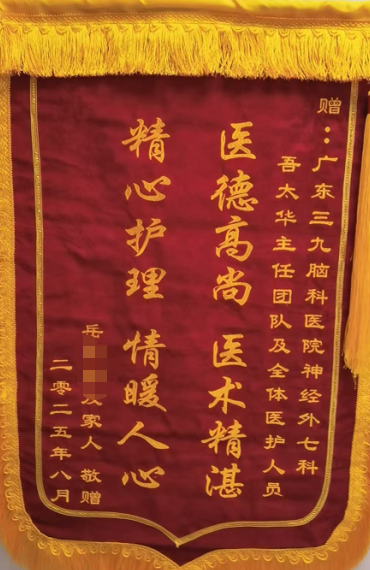 赠：广东三九脑科医院神经外七科
吾太华主任团队及全体医护人员
医德高尚 医术精湛
精心护理 情暖人心
岳 及家人 敬赠
二零二五年八月